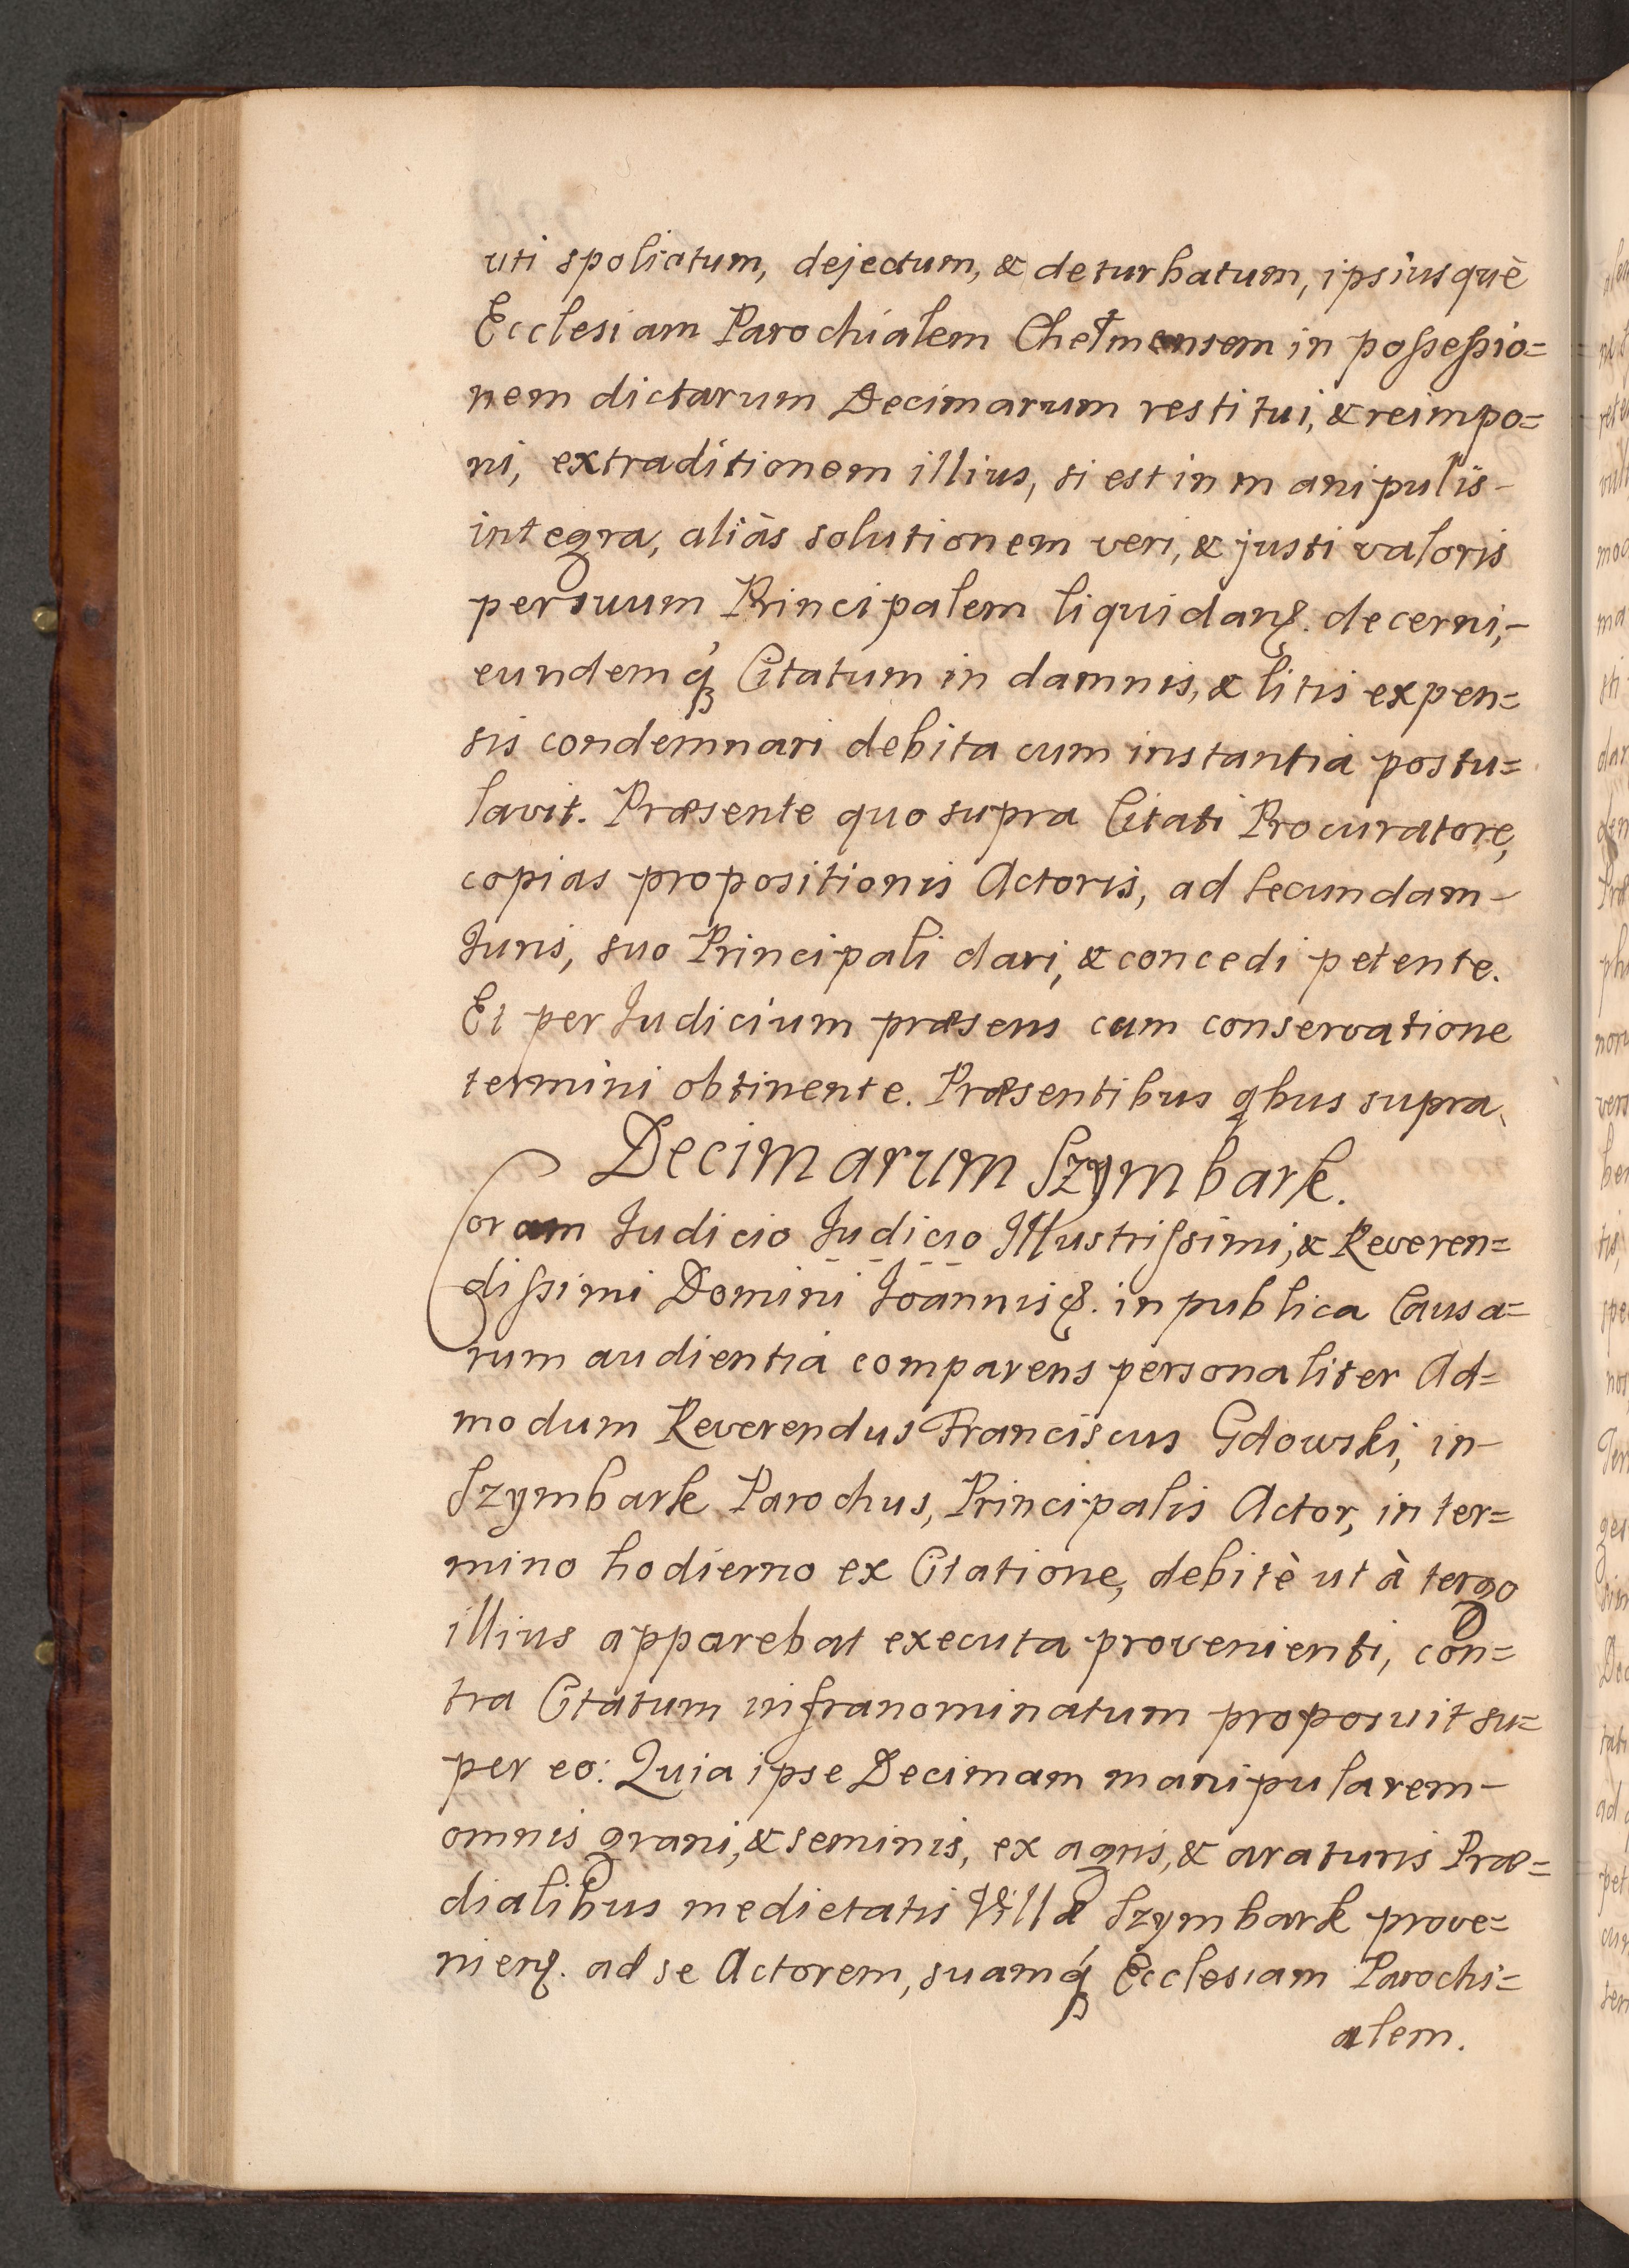 uti spoliatum, dejectum, & deturbatum, ipsiusquè
Ecclesiam Parochialem Chełmensem in possessio=
nem dictarum Decimarum restitui, & reimpo=
ni, extraditionem illius, si est in manipulis
integra, aliàs solutionem veri, & justi valoris
per suum Principalem liquidanȝ. decerni,
eundemq́ꝫ Citatum in damnis, & litis expen=
sis condemnari debita cum instantia postu=
lavit. Præsente quo supra Citati Procuratore,
copias propositionis Actoris, ad secundam
Juris, suo Principali dari, & concedi petente.
Et per Judicium præsens cum conservatione
termini obtinente. Præsentibus qbus supra.
Decimarum Szymbark.
Coram Judicio Judicio Illustrissimi, & Reveren=
dissimi Domini Joannis ȝ. in publica Causa=
rum audientia comparens personaliter Ad=
modum Reverendus Franciscus Gdowski, in
Szymbark Parochus, Principalis Actor, in ter=
mino hodierno ex Citatione, debitè ut à tergo
illius apparebat executa provenienti, con=
tra Citatum infranominatum proposuit su=
per eo: Quia ipse Decimam manipularem
omnis grani, & seminis, ex agris, & araturis Præ=
dialibus medietatis Villæ Szymbark prove=
nienȝ. ad se Actorem, suamq́ꝫ Ecclesiam Parochi=
alem.